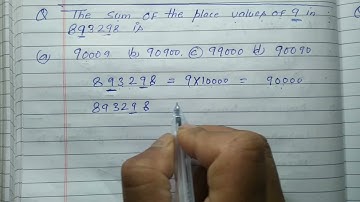 Q The sum of the place values of 9 in
893298 is
(a) 90009 (b) 90900. (c) 99000 (d) 90090
893298 = 9X10000 = 90000
893298